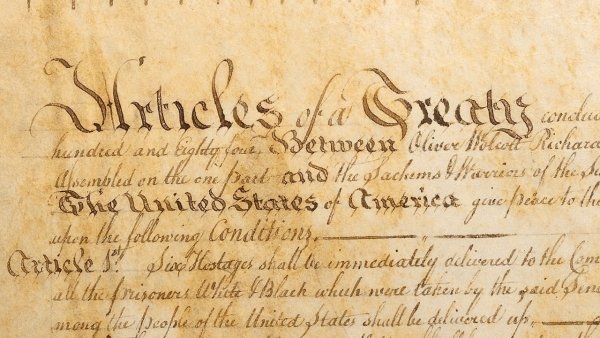 Articles of a Treaty conclu
hundred and Eighty four, Between Oliver Wolcott Richar
Assembled on the one part and the Sachems & Warriors of the
The United States of America give peace to the
upon the following Conditions.
Article 1st Six Hostages shall be immediately delivered to the Com
all the prisoners White & Black which were taken by the said Sene
mong the people of the United States shall be delivered up.